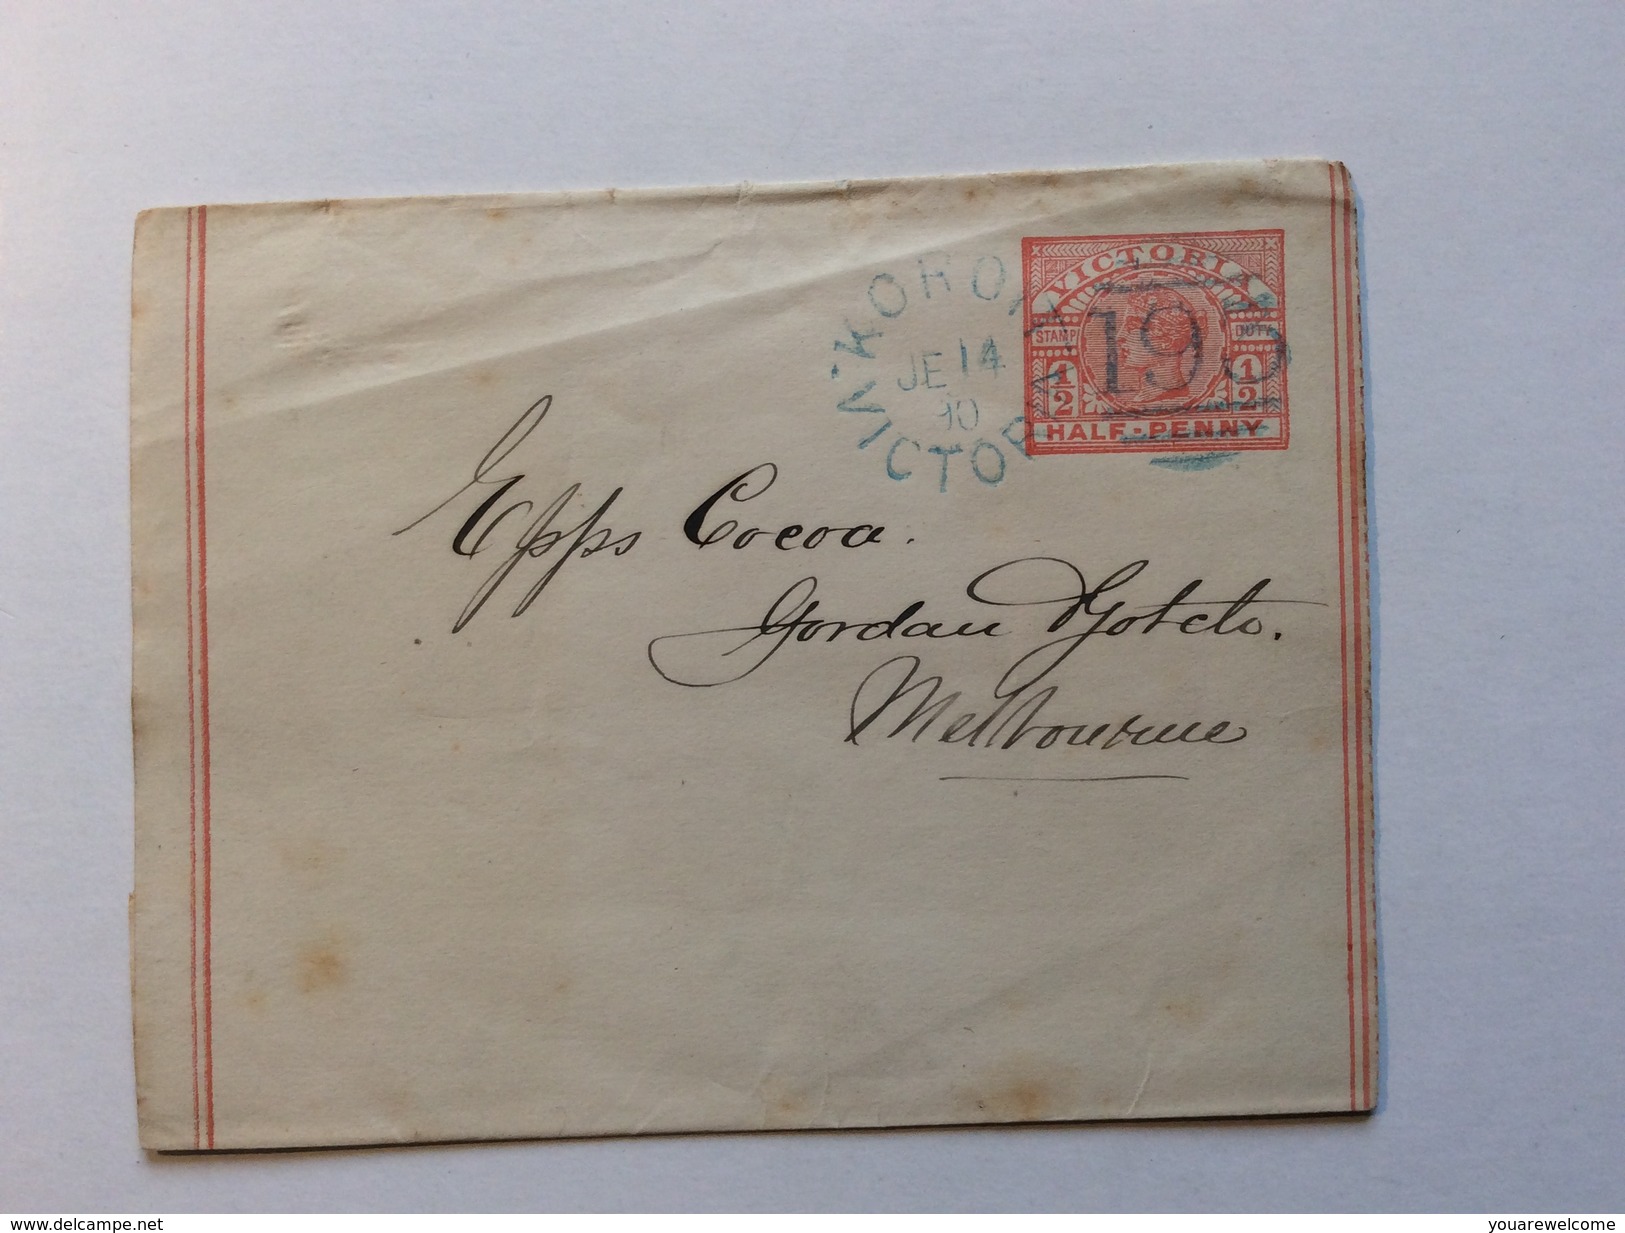 VICTORIA
STAMP DUTY
1/2 1/2
HALF-PENNY
KOROIT
JE 14
90
VICTORIA
195
Epps Cocoa.
Gordan & Gotch
Melbourne
www.delcampe.net
youarewelcome